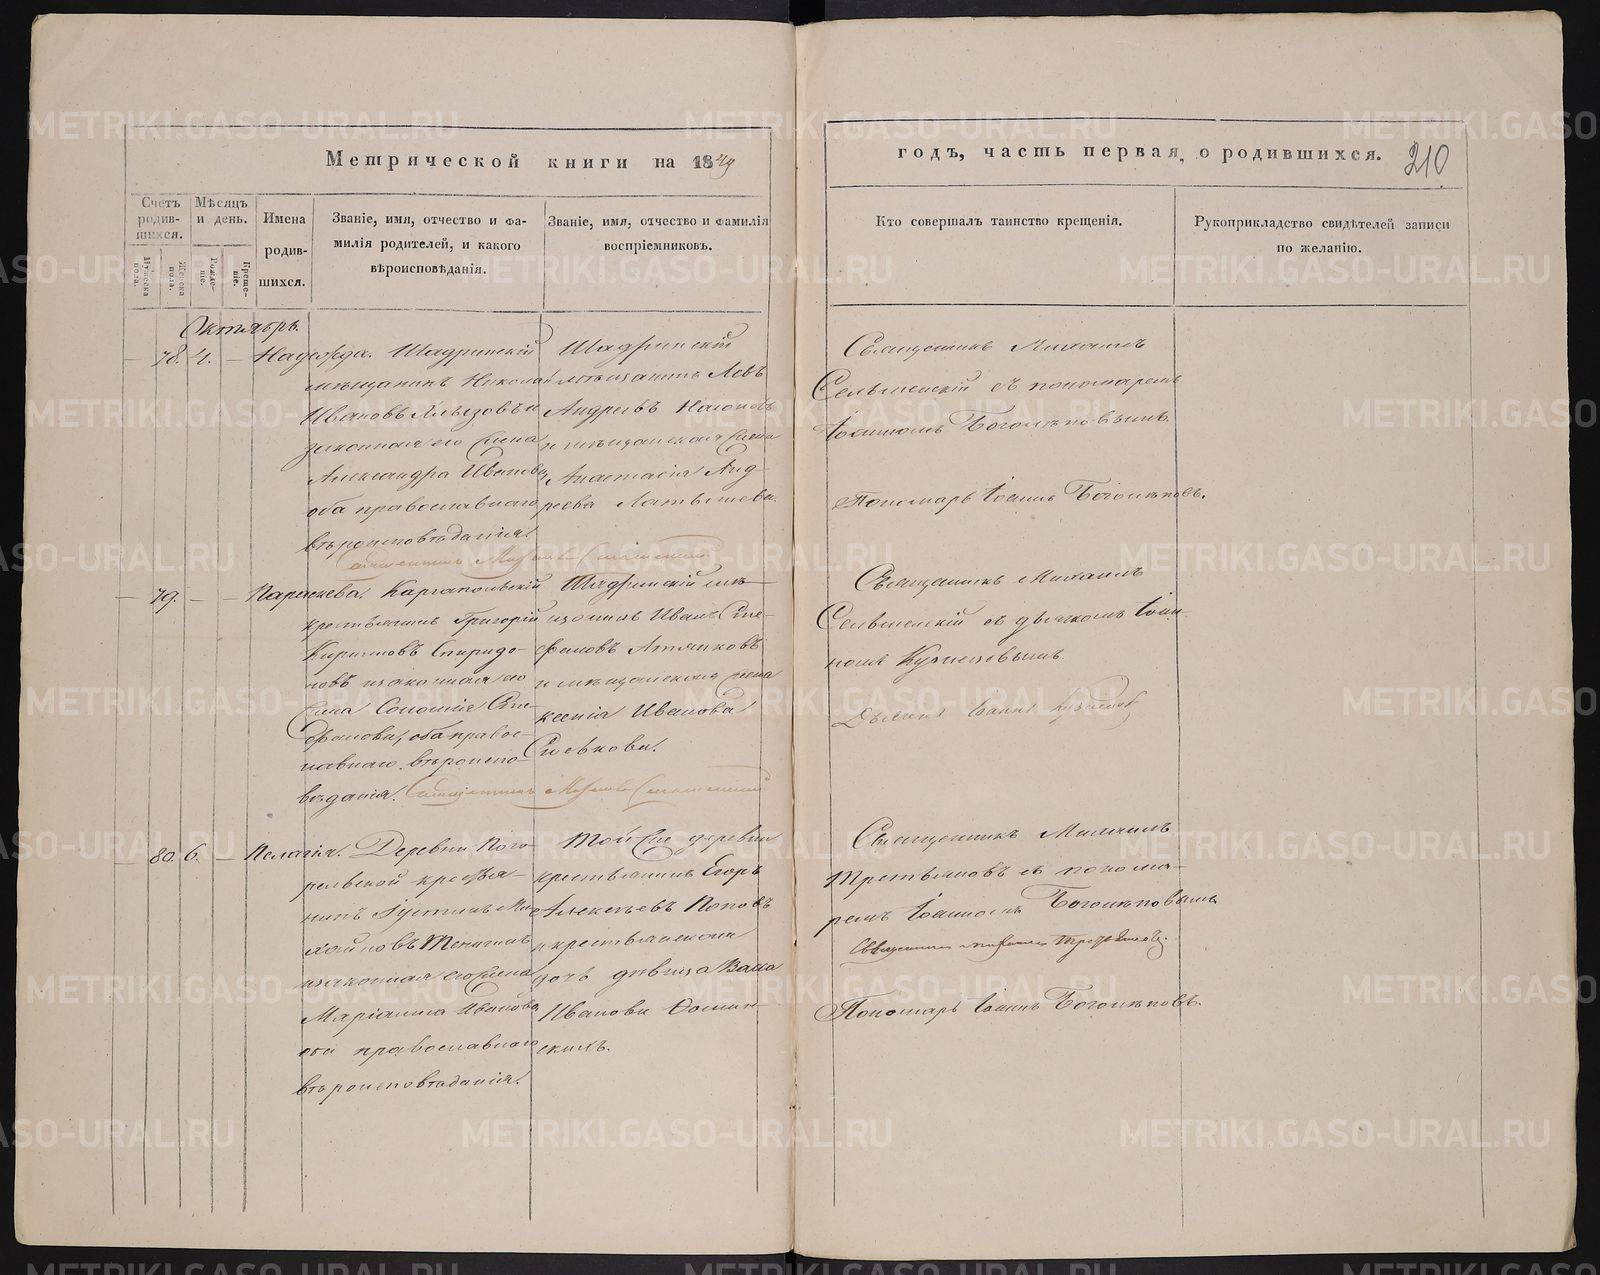 METRIKI.GASO-URAL.RU
Метрической книги на 1849
годъ, часть первая, о родившихся. 210
Счетъ родив-шихся.
Мужеска пола.
Женска пола.
Мѣсяцъ и день.
Рожде-ніе.
Креще-ніе.
Имена
родив-
шихся.
Званіе, имя, отчество и фа-
милія родителей, и какого
вѣроисповѣданія.
Званіе, имя, отчество и фамилія
воспріемниковъ.
Кто совершалъ таинство крещенія.
Рукоприкладство свидѣтелей записи
по желанію.
Октябрь.
— 78. 4. — Надежда.
Шадринскій
мѣщанинъ Николай
Ивановъ и
законная его жена
Александра Иванова,
оба православнаго
вѣроисповѣданія.
Шадринскій
мѣщанинъ Левъ
Андреевъ
и мѣщанская жена
Анастасія Анд-
реева Латышева.
Священникъ Михаилъ
Сельменскій съ пономаремъ
Іоанномъ Боголѣповымъ.
Пономарь Іоаннъ Боголѣповъ.
— 79. — — Параскева.
Каргапольскій
крестьянинъ Григорій
Кириловъ Спиридо-
новъ и законная его
жена Соломія Сте-
фанова, оба правос-
лавнаго вѣроиспо-
вѣданія.
Шадринскій мѣ-
щанинъ Иванъ Сте-
фановъ
и мѣщанская жена
Ксенія Иванова
Священникъ Михаилъ
Сельменскій съ дьячкомъ Іоан-
номъ Кузнецовымъ.
Дьячекъ Іоаннъ Кузнецовъ
— 80. 6. — Пелагія.
Деревни Пого-
рельской крестья-
нинъ Іустинъ Ми-
хайловъ
и законная его жена
Маріанна Иванова
оба православнаго
вѣроисповѣданія.
Той же деревни
крестьянинъ Егоръ
Алексѣевъ Поповъ
и крестьянская
дочь дѣвица Васса
Иванова Фомин-
скихъ.
Священникъ Михаилъ
Третьяковъ съ понома-
ремъ Іоанномъ Боголѣповымъ
Священникъ Михаилъ Третьяковъ.
Пономарь Іоаннъ Боголѣповъ.